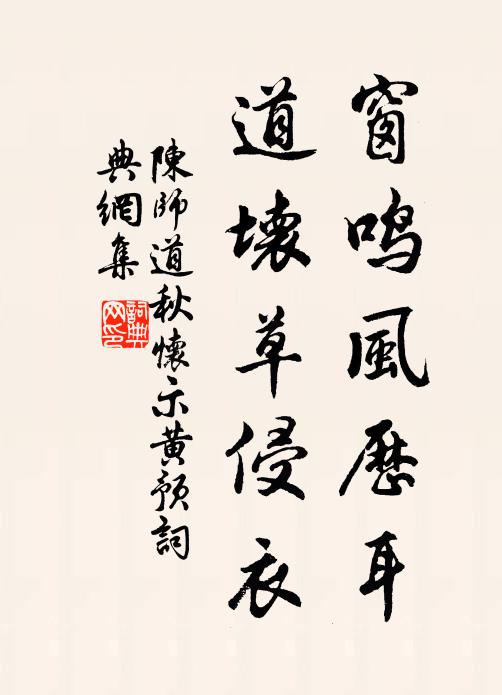 窗鳴風歷耳
道壞草侵衣
陳師道秋懷示黃預詞
典網集
詞典網印